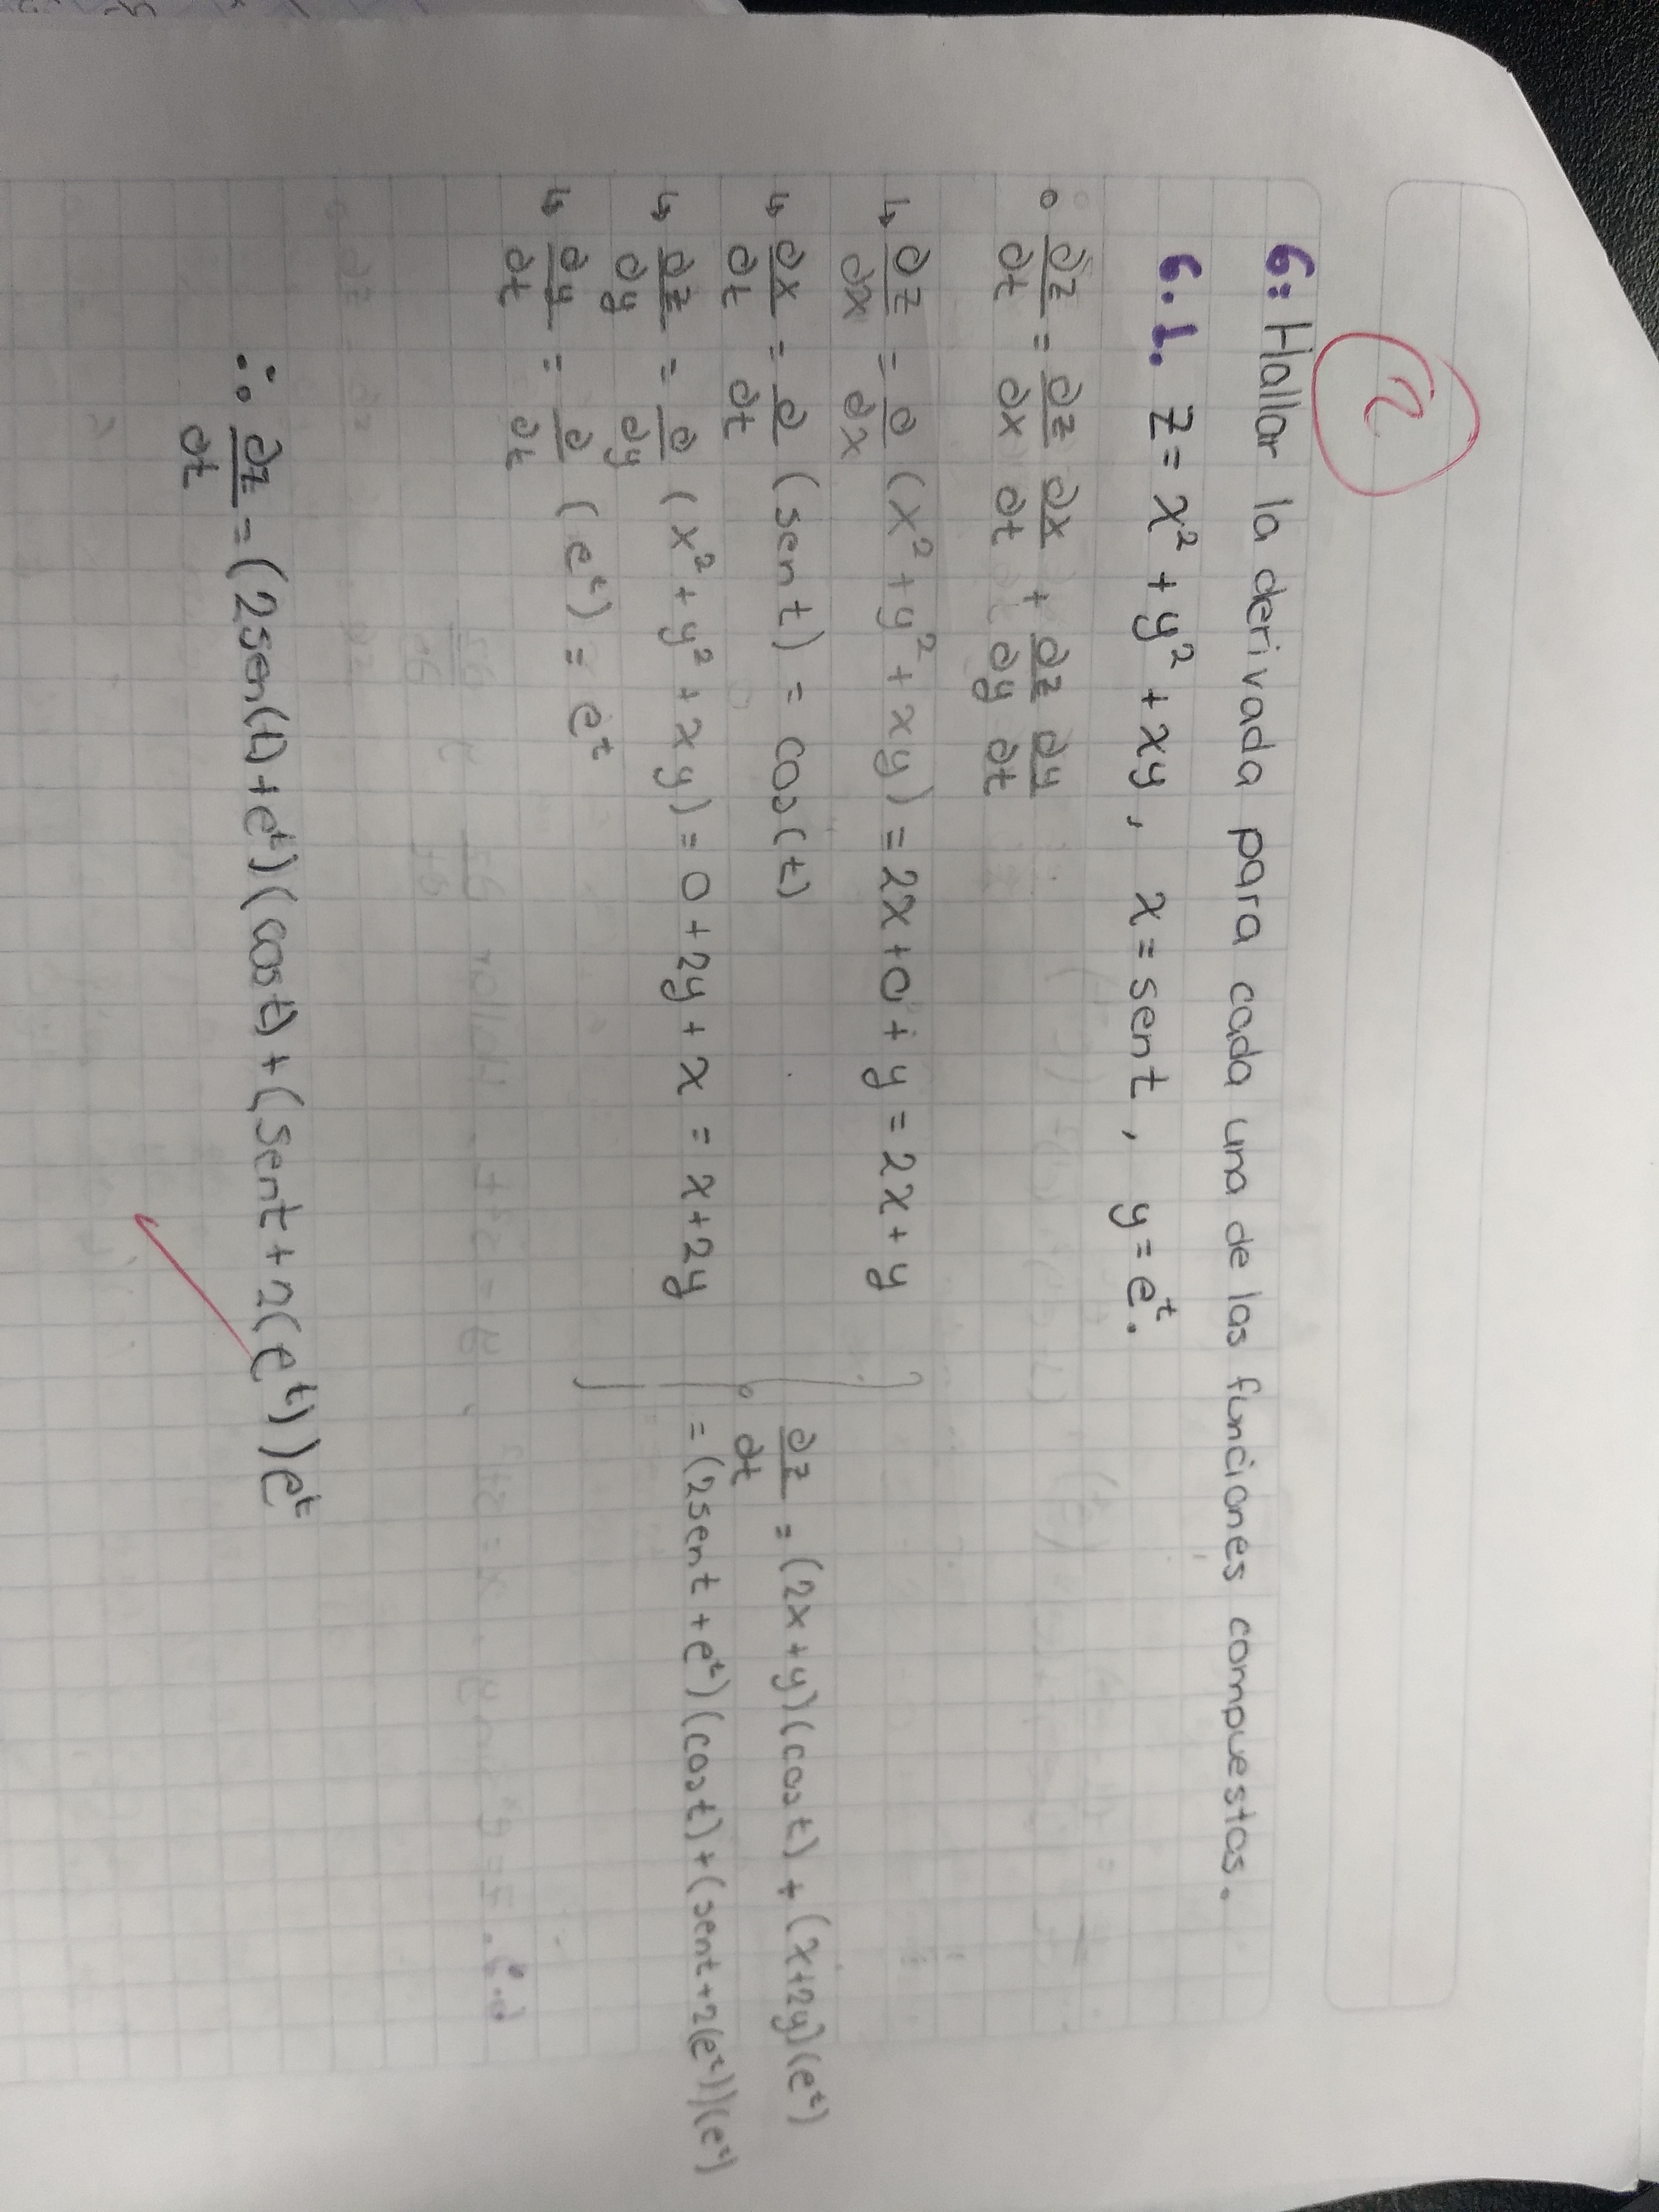 2
6: Hallar la derivada para cada una de las funciones compuestas.
6.1. z = x² + y² + xy, x = sen t, y = e^t.
∂z/∂t = ∂z/∂x ∂x/∂t + ∂z/∂y ∂y/∂t
↳ ∂z/∂x = ∂/∂x (x² + y² + xy) = 2x + 0 + y = 2x + y
↳ ∂x/∂t = ∂/∂t (sen t) = cos(t)
↳ ∂z/∂y = ∂/∂y (x² + y² + xy) = 0 + 2y + x = x + 2y
↳ ∂y/∂t = ∂/∂t (e^t) = e^t
∂z/∂t = (2x + y)(cos t) + (x + 2y)(e^t)
= (2sen t + e^t)(cos t) + (sen t + 2(e^t))(e^t)
∴ ∂z/∂t = (2sen(t) + e^t)(cos t) + (sen t + 2(e^t))e^t